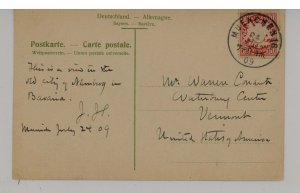 Deutschland. — Allemagne.
Bayern. — Bavière.
Postkarte. — Carte postale.
Weltpostverein. — Union postale universelle.
MUENCHEN 16
24
09
This is a view in the
old city of Nurnberg in
Bavaria.
J. H.
Munich July 24 09
Mr. Warren
Waterbury Center
Vermont
United States of America